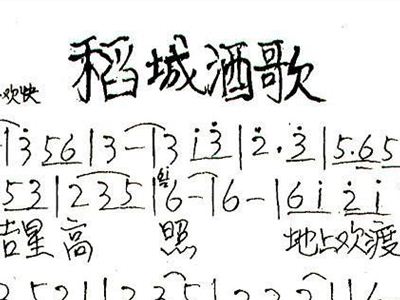 稻城酒歌
欢快
3 5 6 | 3 - | 3 i 3 | 2 . 3 | 5 . 6 5
5 3 | 2 3 5 | 6 - | 6 - | 6 i 2 i
吉星高 照 地上欢渡